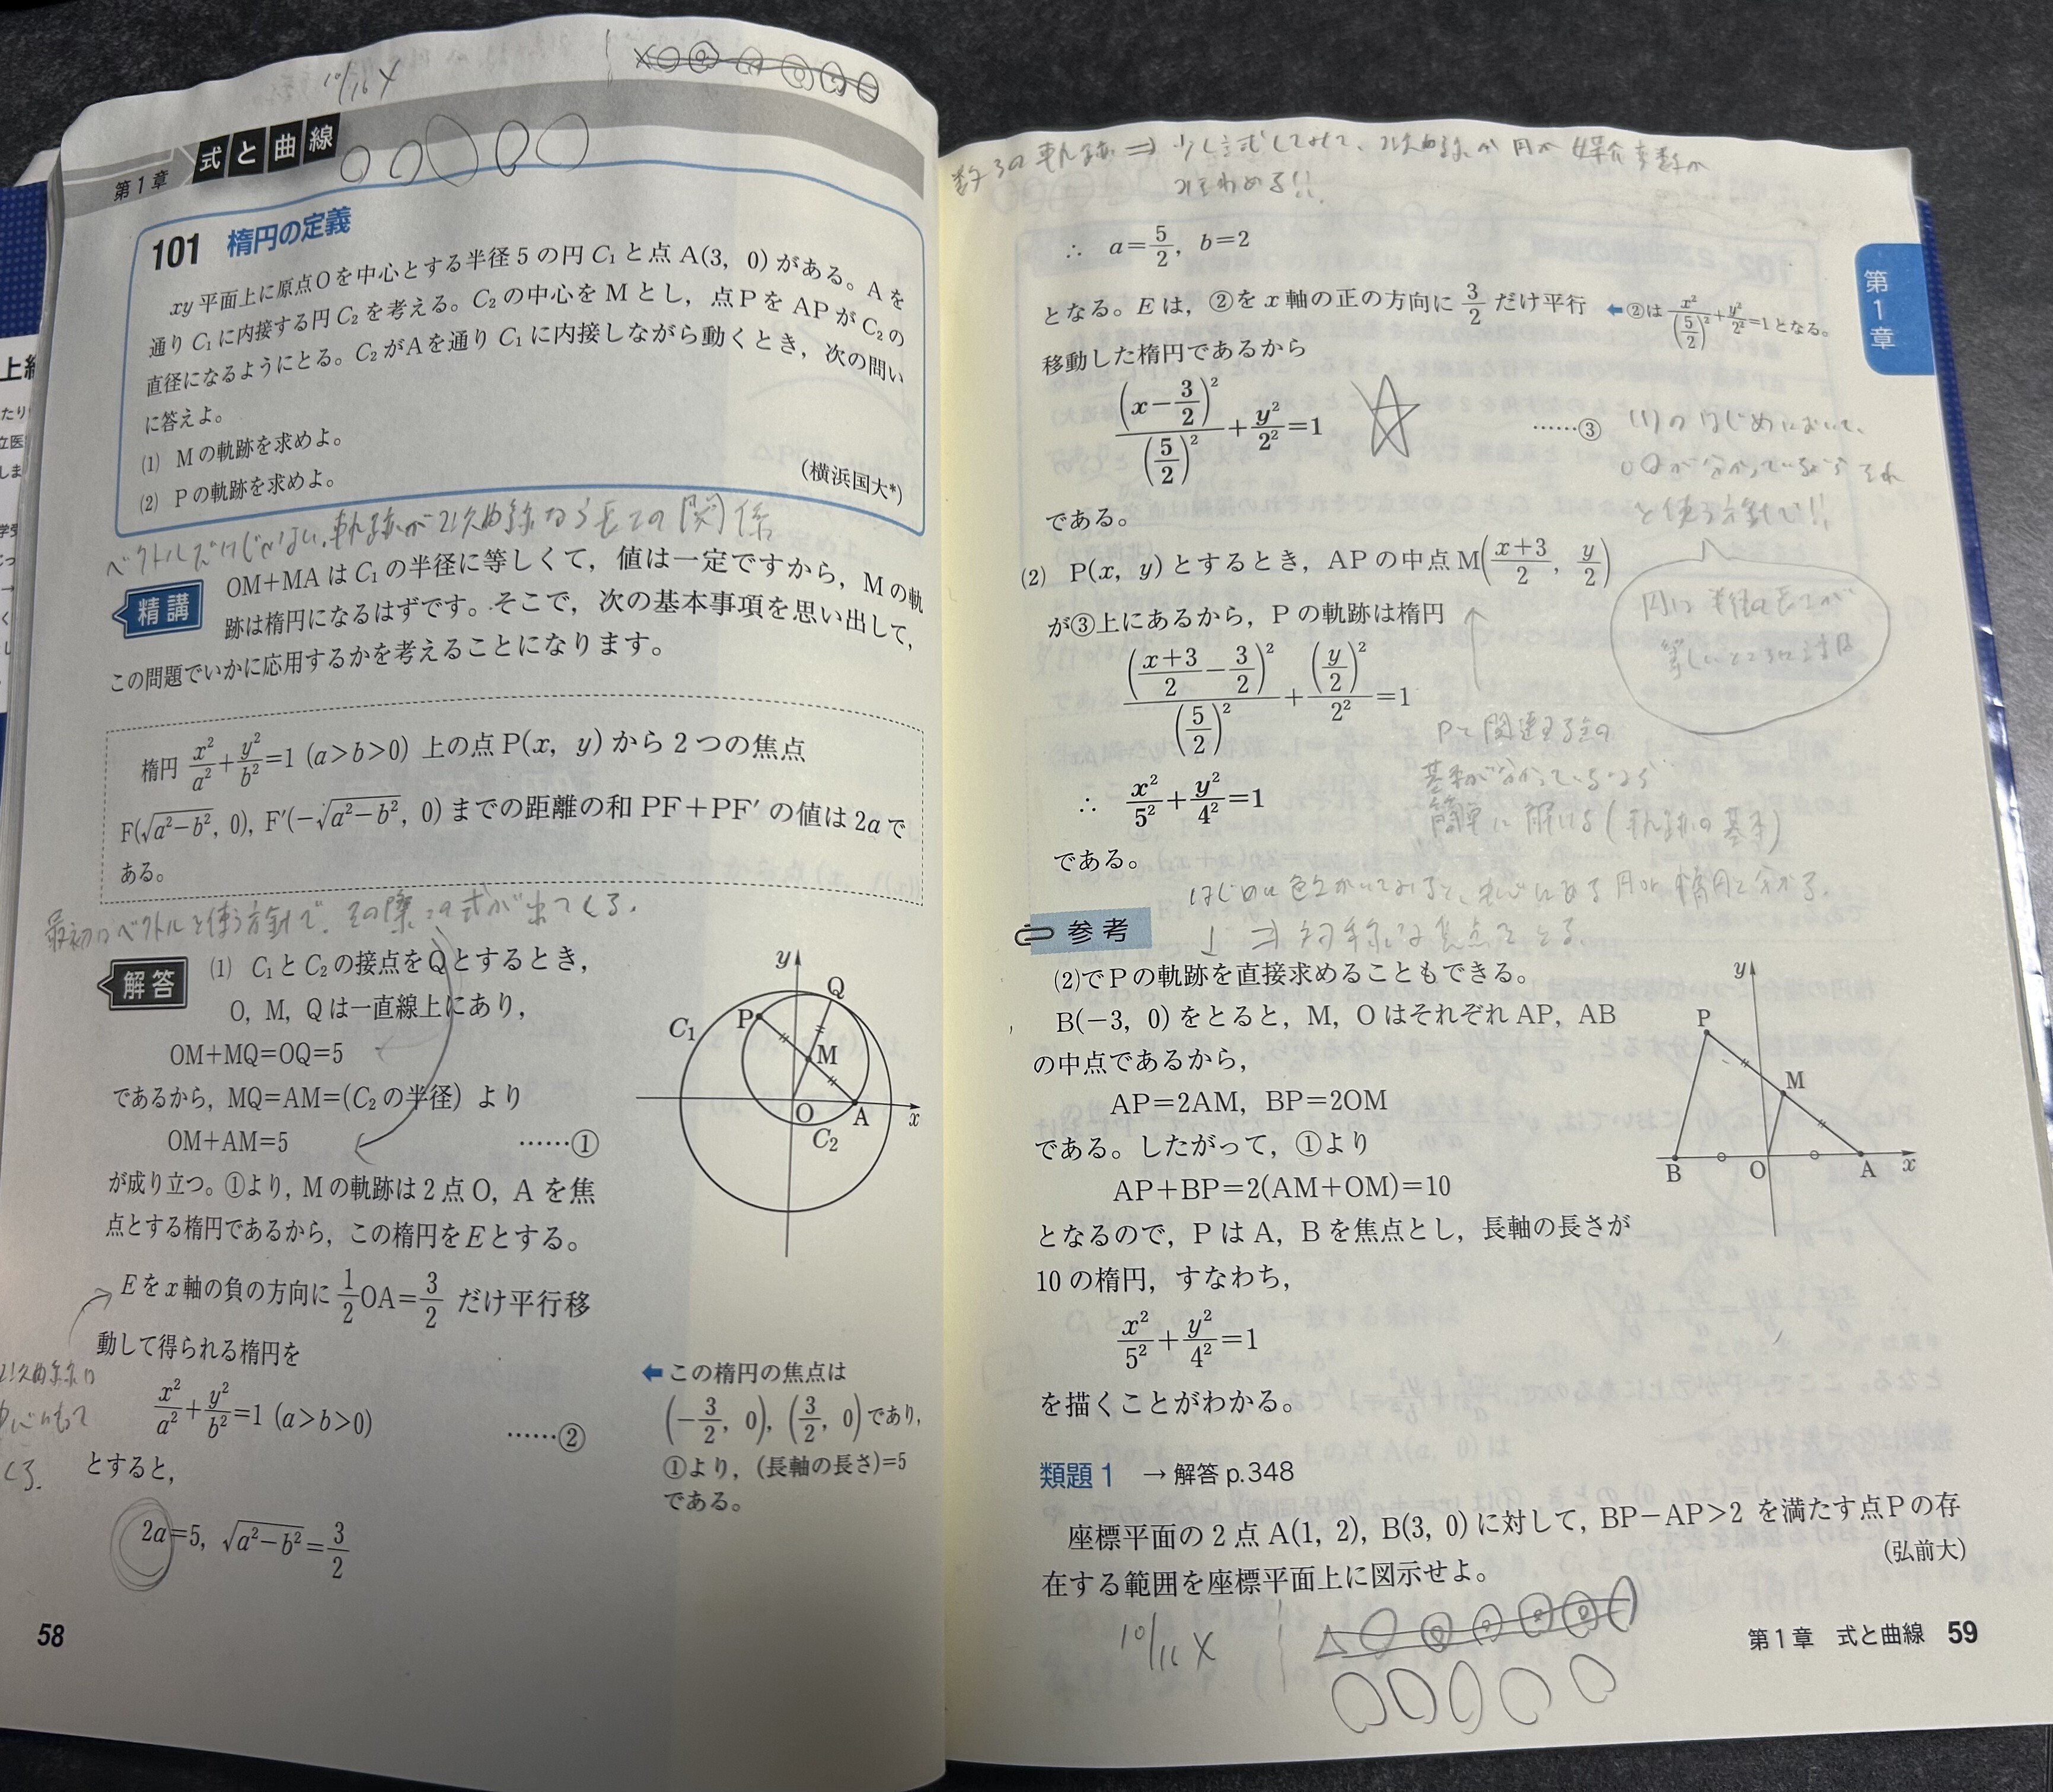 10/16 ×
第1章 式と曲線
101 楕円の定義
xy平面上に原点Oを中心とする半径5の円C₁と点A(3, 0)がある。Aを
通りC₁に内接する円C₂を考える。C₂の中心をMとし，点PをAPがC₂の
直径になるようにとる。C₂がAを通りC₁に内接しながら動くとき，次の問い
に答えよ。
(1) Mの軌跡を求めよ。
(2) Pの軌跡を求めよ。
(横浜国大*)
ベクトルだけじゃない，軌跡が2次曲線なら長さの関係
精講 OM+MAはC₁の半径に等しくて，値は一定ですから，Mの軌
跡は楕円になるはずです。そこで，次の基本事項を思い出して，
この問題でいかに応用するかを考えることになります。
楕円 x²/a²+y²/b²=1 (a>b>0) 上の点P(x, y)から2つの焦点
F(√(a²−b²), 0), F′(−√(a²−b²), 0)までの距離の和PF+PF′の値は2aで
ある。
最初はベクトルを使う方針で，その際この式が出てくる．
解答 (1) C₁とC₂の接点をQとするとき，
O, M, Qは一直線上にあり，
OM+MQ=OQ=5
であるから, MQ=AM=(C₂の半径) より
OM+AM=5 ……①
が成り立つ。①より, Mの軌跡は2点O, Aを焦
点とする楕円であるから，この楕円をEとする。
Eをx軸の負の方向に 1/2 OA=3/2 だけ平行移
動して得られる楕円を
x²/a²+y²/b²=1 (a>b>0) ……②
とすると，
2a=5, √(a²−b²)=3/2
y
Q
P
C₁
M
O
A
x
C₂
←この楕円の焦点は
(−3/2, 0), (3/2, 0)であり,
①より, (長軸の長さ)=5
である。
2次曲線は
58
∴ a=5/2, b=2
となる。Eは, ②をx軸の正の方向に 3/2 だけ平行
移動した楕円であるから
←②は x²/(5/2)²+y²/2²=1となる。
(x−3/2)²/(5/2)²+y²/2²=1 ……③
である。
(1)のはじめにおいて、
OQが分かっているからそれ
を使う方針で!!
(2) P(x, y)とするとき, APの中点M((x+3)/2, y/2)
が③上にあるから, Pの軌跡は楕円
((x+3)/2−3/2)²/(5/2)²+(y/2)²/2²=1
∴ x²/5²+y²/4²=1
である。
円は半径の長さが
等しいところに注目
Pと関連する点の
簡単に解ける(軌跡の基本)
参考
(2)でPの軌跡を直接求めることもできる。
B(−3, 0)をとると, M, OはそれぞれAP, AB
の中点であるから，
AP=2AM, BP=2OM
である。したがって，①より
AP+BP=2(AM+OM)=10
となるので, PはA, Bを焦点とし，長軸の長さが
10の楕円，すなわち，
x²/5²+y²/4²=1
を描くことがわかる。
y
P
M
B
O
A
x
類題1 →解答p.348
座標平面の2点A(1, 2), B(3, 0)に対して, BP−AP>2を満たす点Pの存
在する範囲を座標平面上に図示せよ。
(弘前大)
第1章 式と曲線 59
第1章